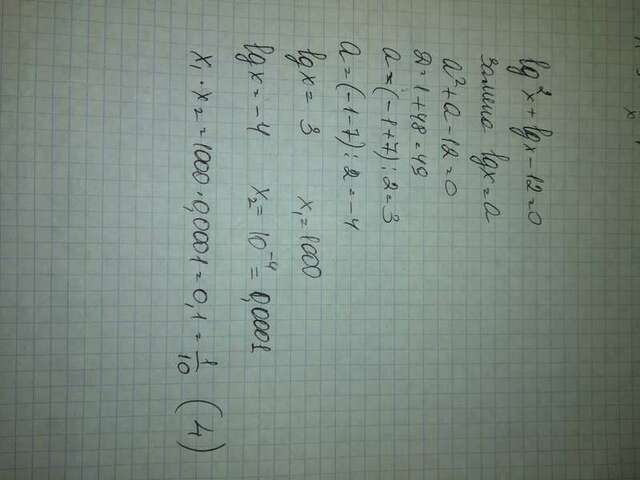 lg²x + lgx - 12 = 0
замена lgx = a
a² + a - 12 = 0
D = 1 + 48 = 49
a = (-1+7) : 2 = 3
a = (-1-7) : 2 = -4
lgx = 3 x₁ = 1000
lgx = -4 x₂ = 10⁻⁴ = 0,0001
x₁ · x₂ = 1000 · 0,0001 = 0,1 = 1/10 (4)